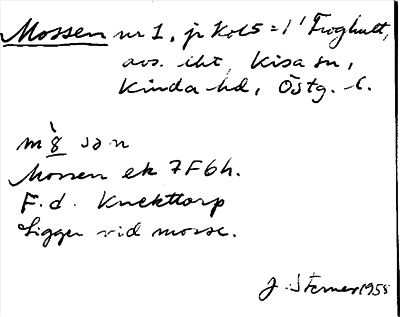 Mossen nr 1, jr Kol5 = 1' Froghult,
avs. iht, Kisa sn,
Kinda hd, Östg. l.
mò̱8̱ sən
Mossen ek 7F6h.
F.d. Knekttorp
Ligger vid mosse.
J. Sterner 1958